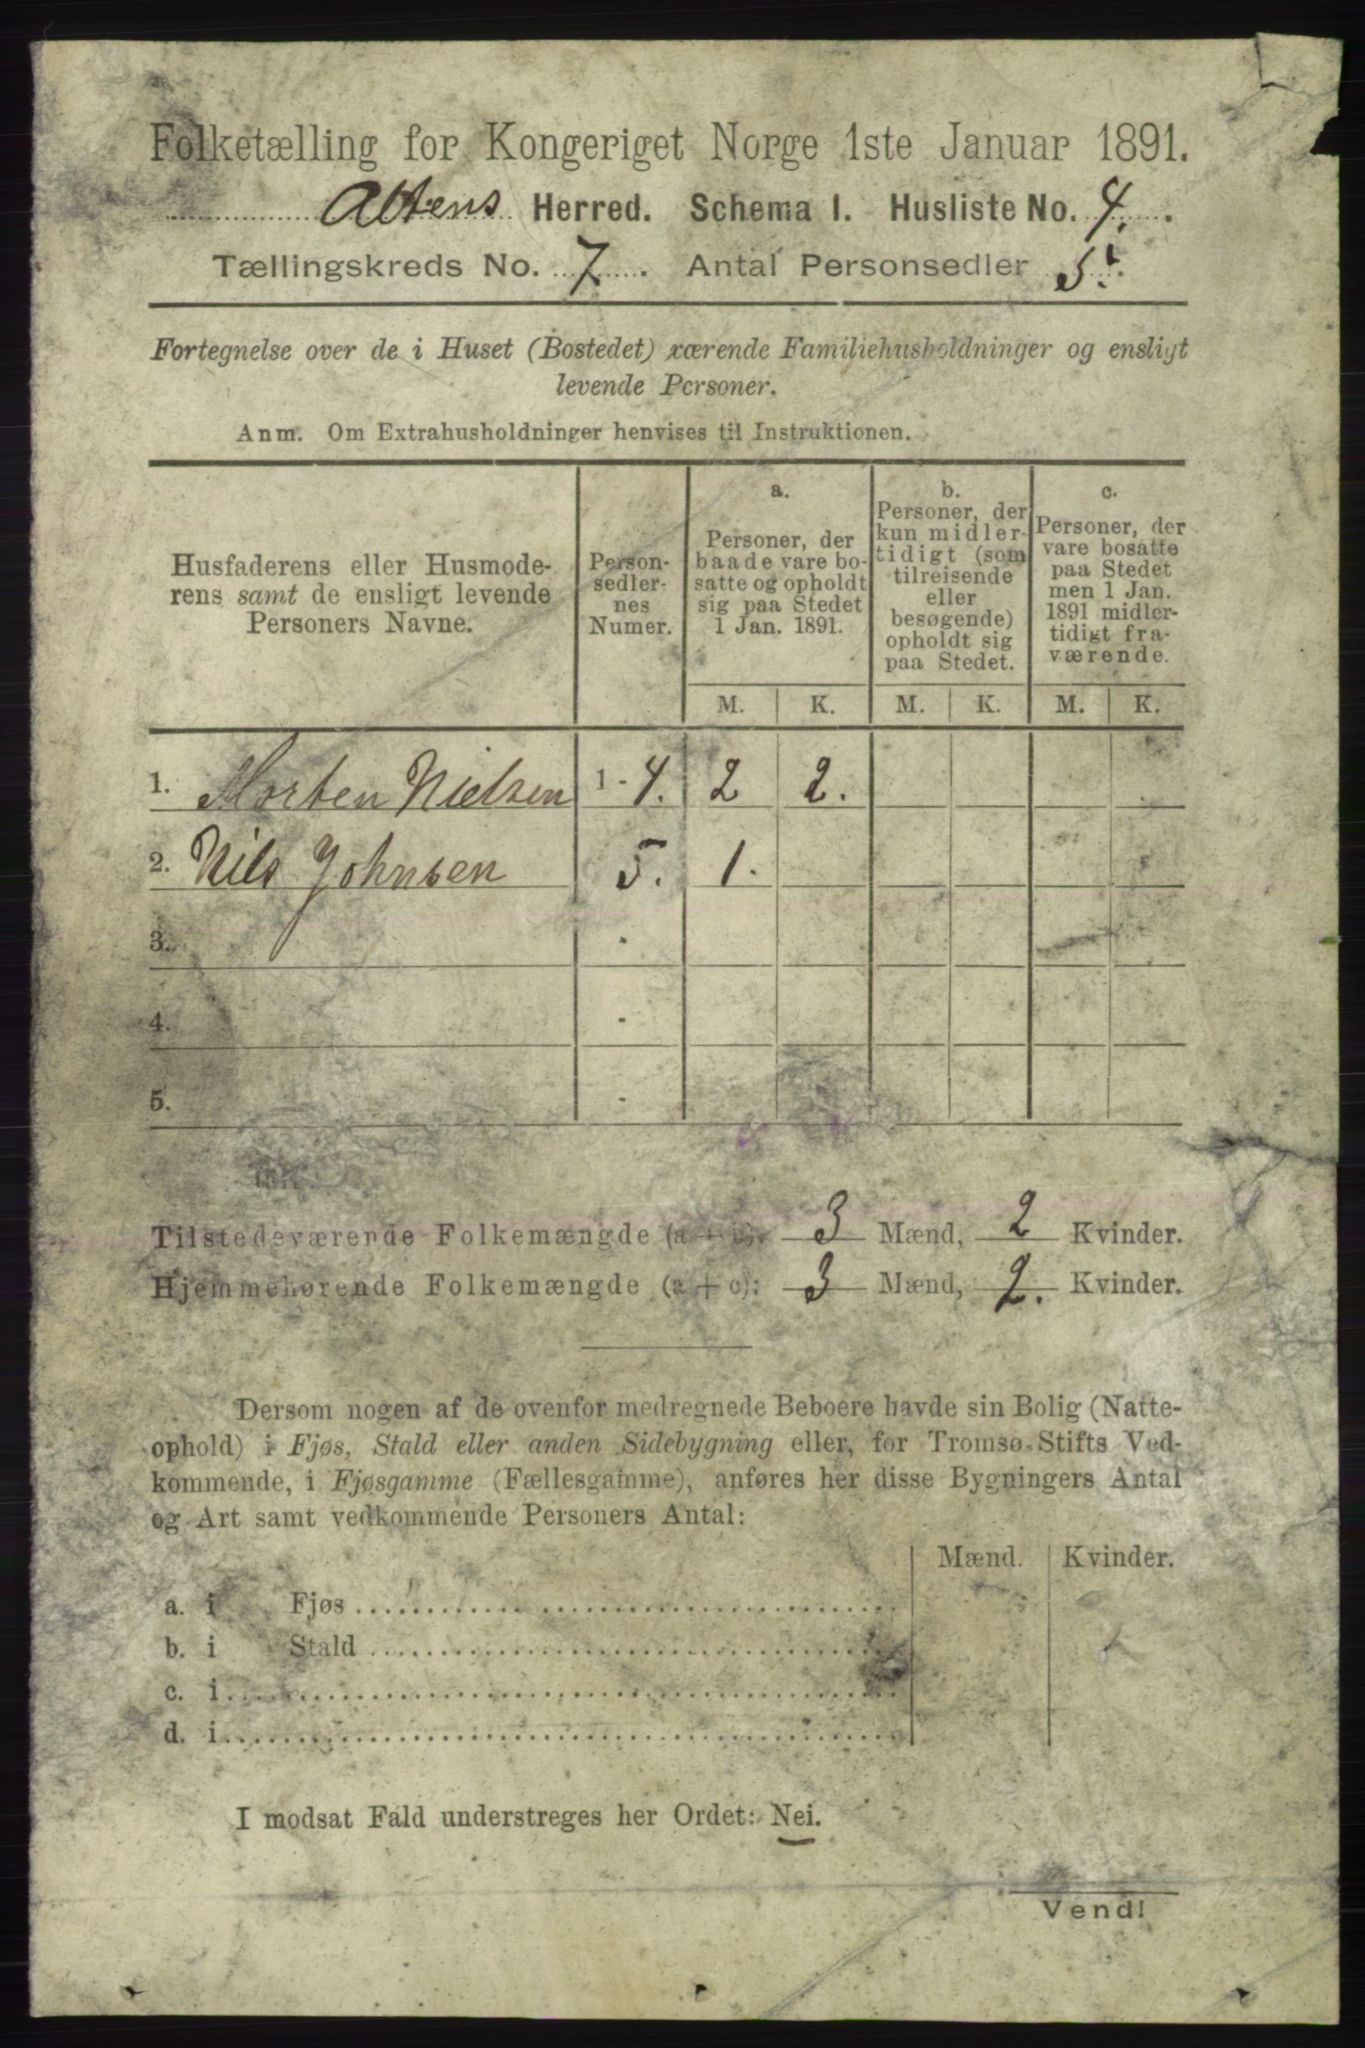 Folketælling for Kongeriget Norge 1ste Januar 1891.
Altens Herred. Schema 1. Husliste No. 4.
Tællingskreds No. 7. Antal Personsedler 5.
Fortegnelse over de i Huset (Bostedet) værende Familiehusholdninger og ensligt
levende Personer.
Anm. Om Extrahusholdninger henvises til Instruktionen.
Husfaderens eller Husmode-
rens samt de ensligt levende
Personers Navne.
Person-
sedler-
nes
Numer.
a.
Personer, der
baade vare bo-
satte og opholdt
sig paa Stedet
1 Jan. 1891.
b.
Personer, der
kun midler-
tidigt (som
tilreisende
eller
besøgende)
opholdt sig
paa Stedet.
c.
Personer, der
vare bosatte
paa Stedet
men 1 Jan.
1891 midler-
tidigt fra-
værende.
M. K. M. K. M. K.
1. Morten Nielsen 1 - 4. 2 2.
2. Nils Johnsen 5. 1.
3. -
4. -
5. -
Tilstedeværende Folkemængde (a + b): 3 Mænd, 2 Kvinder.
Hjemmehørende Folkemængde (a + c): 3 Mænd, 2. Kvinder.
Dersom nogen af de ovenfor medregnede Beboere havde sin Bolig (Natte-
ophold) i Fjøs, Stald eller anden Sidebygning eller, for Tromsø Stifts Ved-
kommende, i Fjøsgamme (Fællesgamme), anføres her disse Bygningers Antal
og Art samt vedkommende Personers Antal:
Mænd. Kvinder.
a. i Fjøs
b. i Stald
c. i
d. i
I modsat Fald understreges her Ordet: Nei.
Vend!